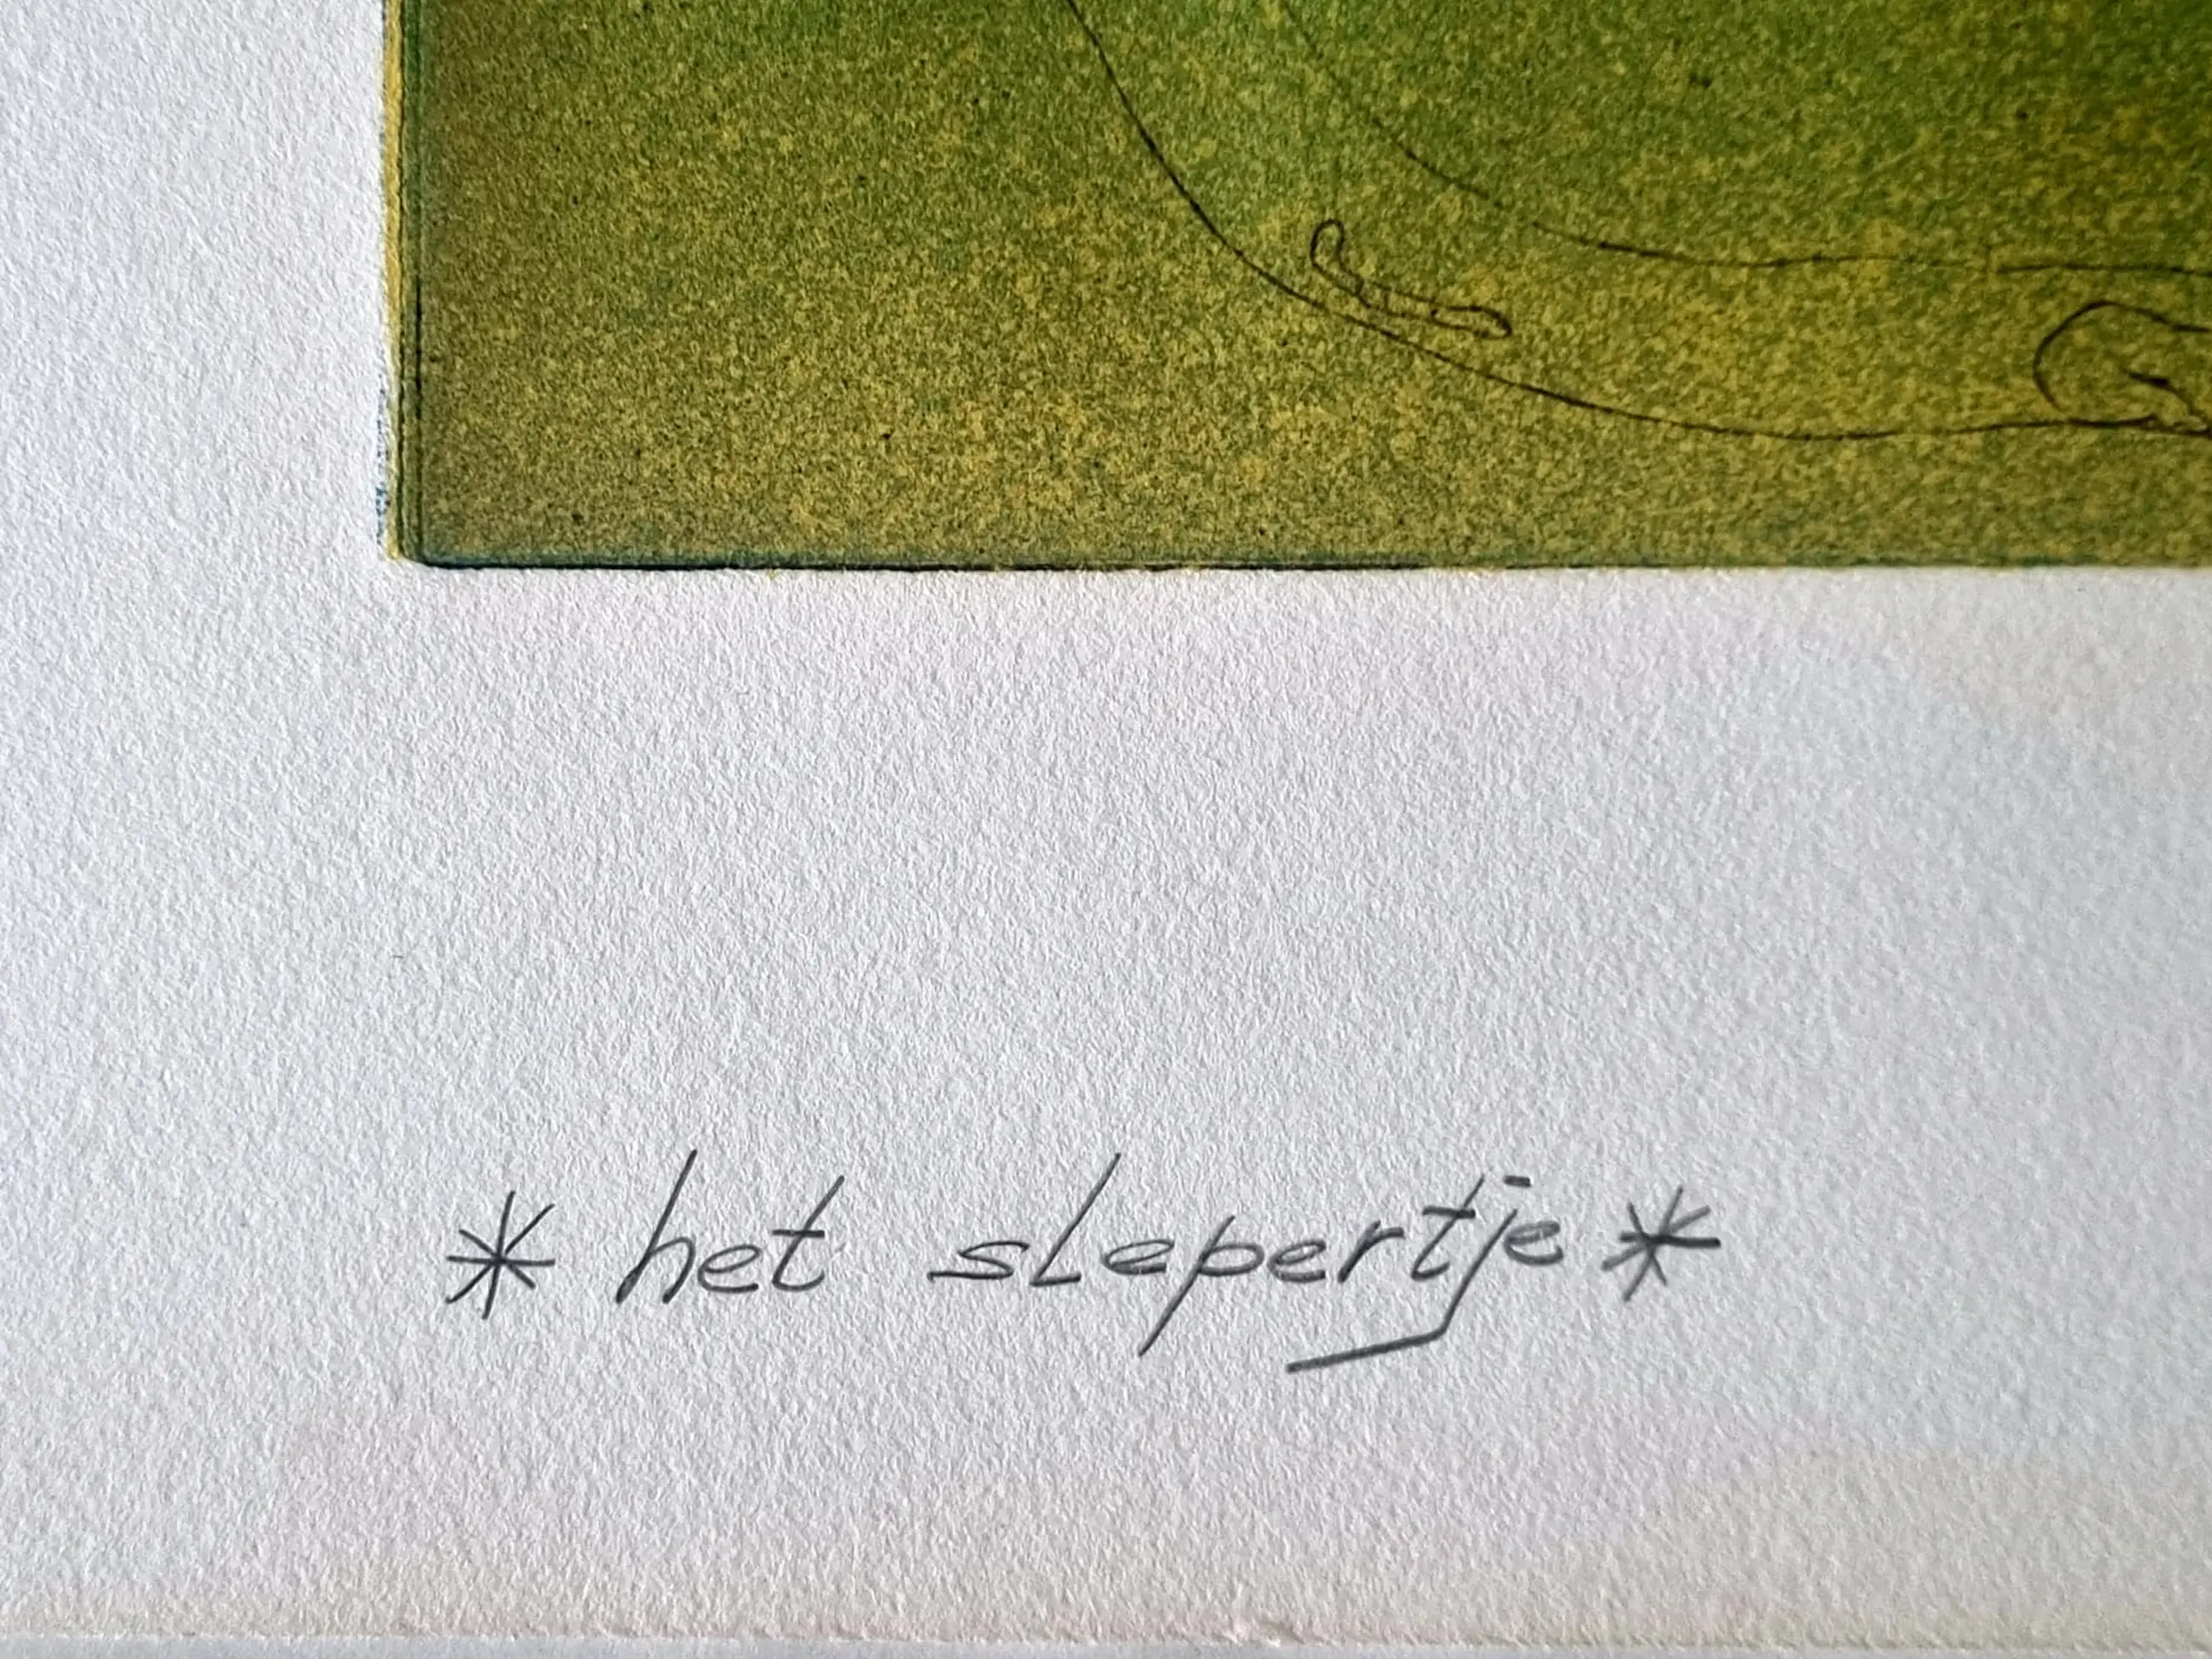 * het slepertje *